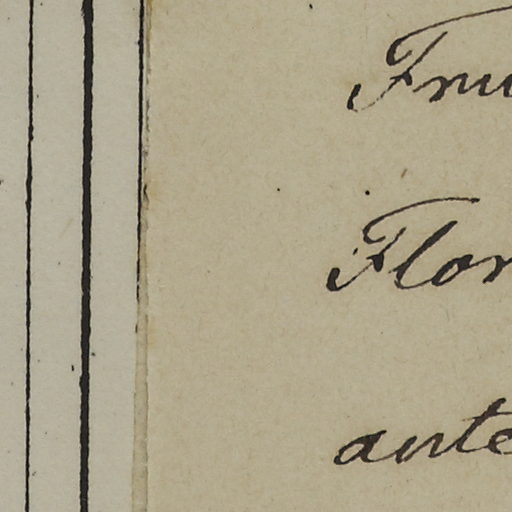 Fru
Flor
ante